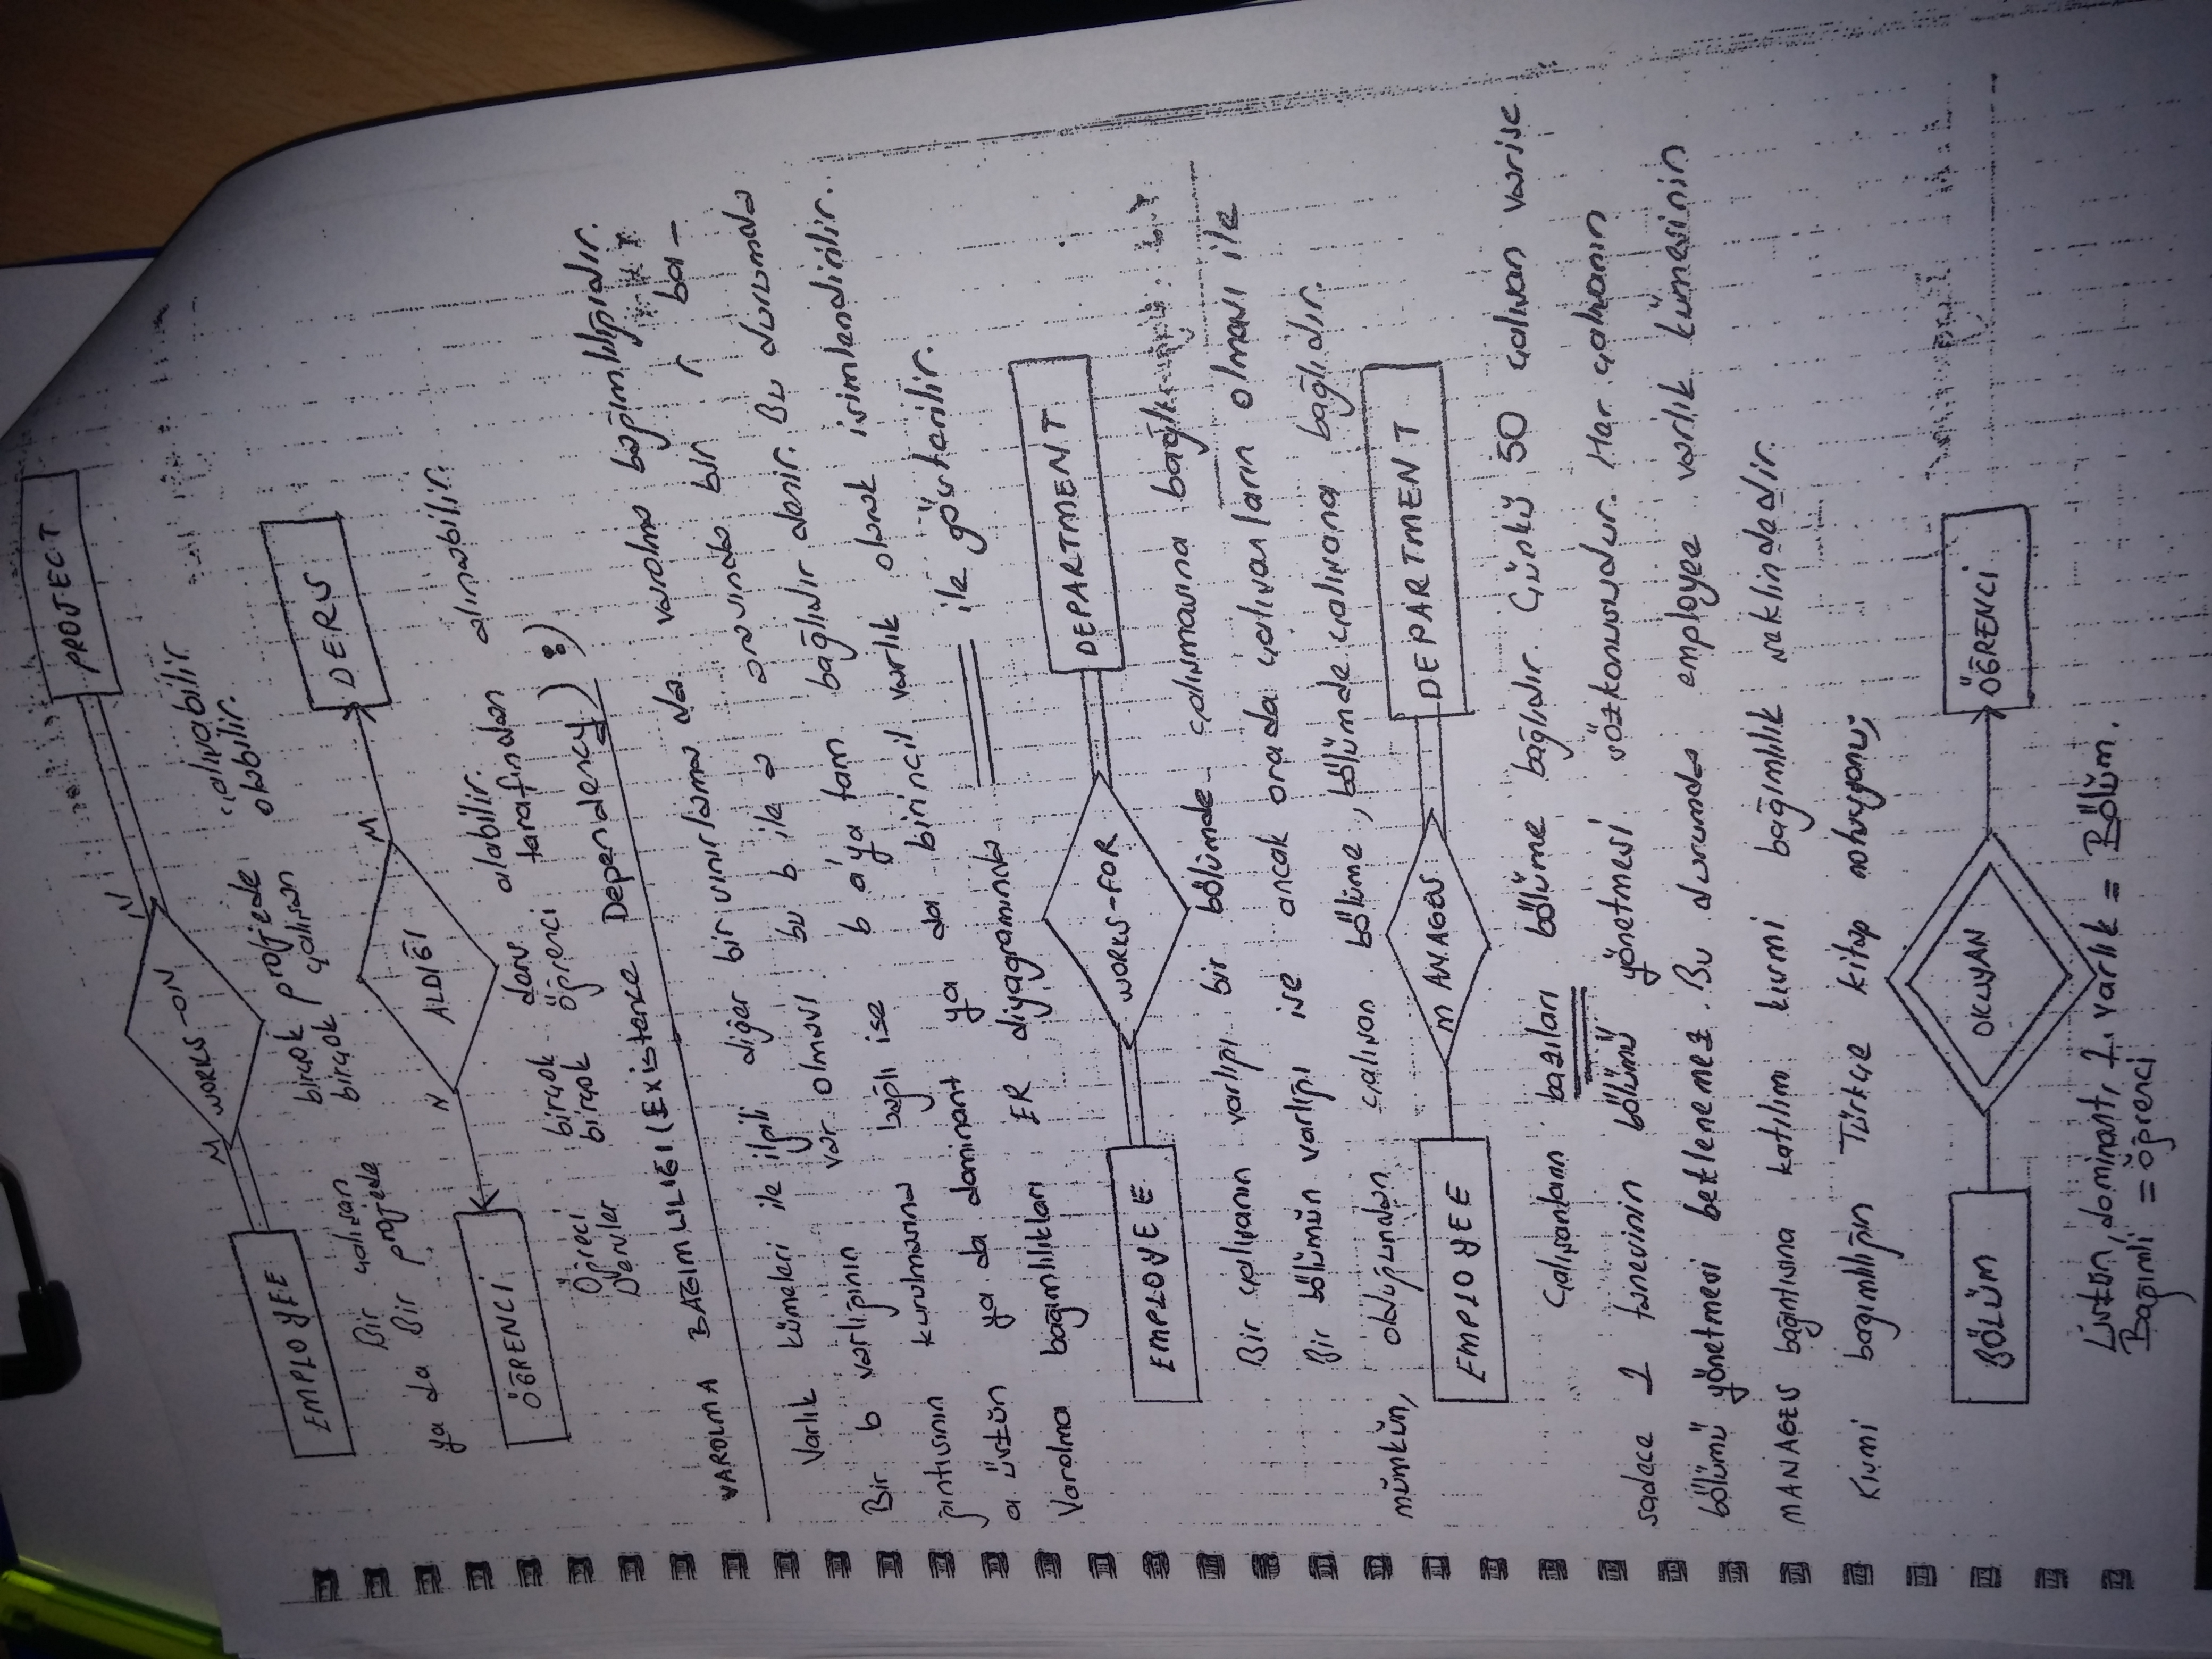 EMPLOYEE M WORKS-ON N PROJECT
Bir çalışan birçok projede çalışabilir
ya da Bir projede birçok çalışan olabilir.
ÖĞRENCİ N ALDIĞI M DERS
Öğreci birçok ders alabilir.
Dersler birçok öğrenci tarafından alınabilir.
VAROLMA BAĞIMLILIĞI (Existence Dependency) :)
Varlık kümeleri ile ilgili diğer bir sınırlama da varolma bağımlılığıdır.
Bir b varlığının var olması bu b ile a arasında bir r ba-
ğıntısının kurulmasına bağlı ise b a'ya tam bağlıdır denir. Bu durumda
a üstün ya da dominant ya da birincil varlık olarak isimlendirilir.
Varolma bağımlılıkları ER diyagramında ile gösterilir.
EMPLOYEE WORKS-FOR DEPARTMENT
Bir çalışanın varlığı bir bölümde çalışmasına bağlı
Bir bölümün varlığı ise ancak orada çalışanların olması ile
mümkün, olduğundan çalışan bölüme, bölümde çalışana bağlıdır.
EMPLOYEE MANAGES DEPARTMENT
Çalışanların bazıları bölüme bağlıdır. Çünkü 50 çalışan varise
sadece 1 tanesinin bölümü yönetmesi sözkonusudur. Her çalışanın
bölümü yönetmesi beklenemez. Bu durumda employee varlık kümesinin
MANAGES bağıntısına katılım kısmi bağımlılık şeklindedir.
Kısmi bağımlılığın Türkçe kitap
BÖLÜM OKUYAN ÖĞRENCİ
Üstün, dominant, 1. varlık = Bölüm.
Bağımlı = öğrenci